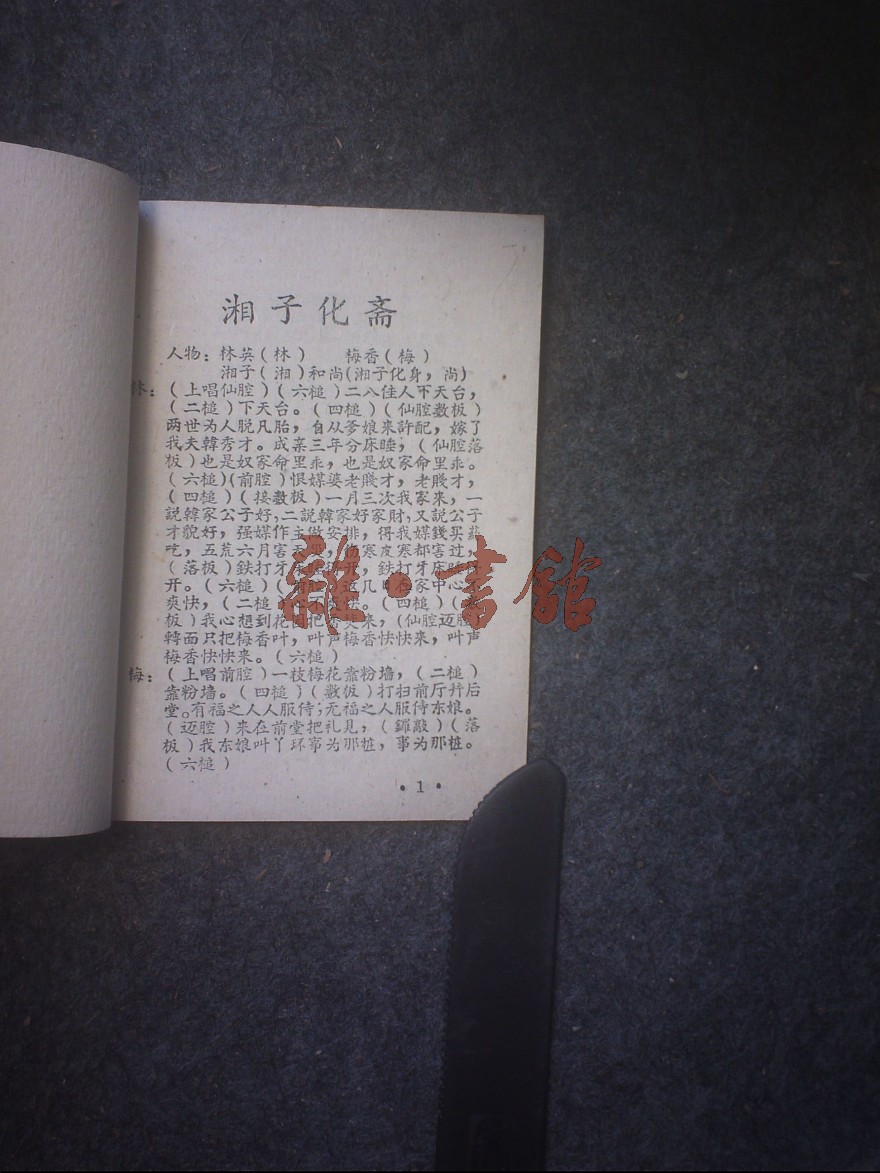 湘子化斋
人物：林英(林)　梅香(梅)
湘子(湘)和尚(湘子化身，尚)
林：(上唱仙腔)(六槌)二八佳人下天台，
(二槌)下天台。(四槌)(仙腔数板)
两世为人脱凡胎，自从爹娘来許配，嫁了
我夫韓秀才。成亲三年分床睡，(仙腔落
板)也是奴家命里乖，也是奴家命里乖。
(六槌)(前腔)恨媒婆老賤才，老賤才，
(四槌)(接数板)一月三次我家来，一
説韓家公子好，二説韓家好家財，又説公子
才貌好，强媒作主做安排，得我媒錢买
吃，五荒六月害 寒皮寒都害过，
(落板)鉄打牙床 开，鉄打牙床
开。(六槌) 这几日在家中心
爽快，(二槌)心不 快。(四槌)
板)我心想到花园 来，(仙腔迈腔)
轉面只把梅香叫，叫声梅香快快来，叫声
梅香快快来。(六槌)
梅：(上唱前腔)一枝梅花靠粉墙，(二槌)
靠粉墙。(四槌)(数板)打扫前厅幷后
堂。有福之人人服侍；无福之人服侍东娘。
(迈腔)来在前堂把礼見，(鑼敲)(落
板)我东娘叫丫环事为那桩，事为那桩。
(六槌)
•1•
雜·書館